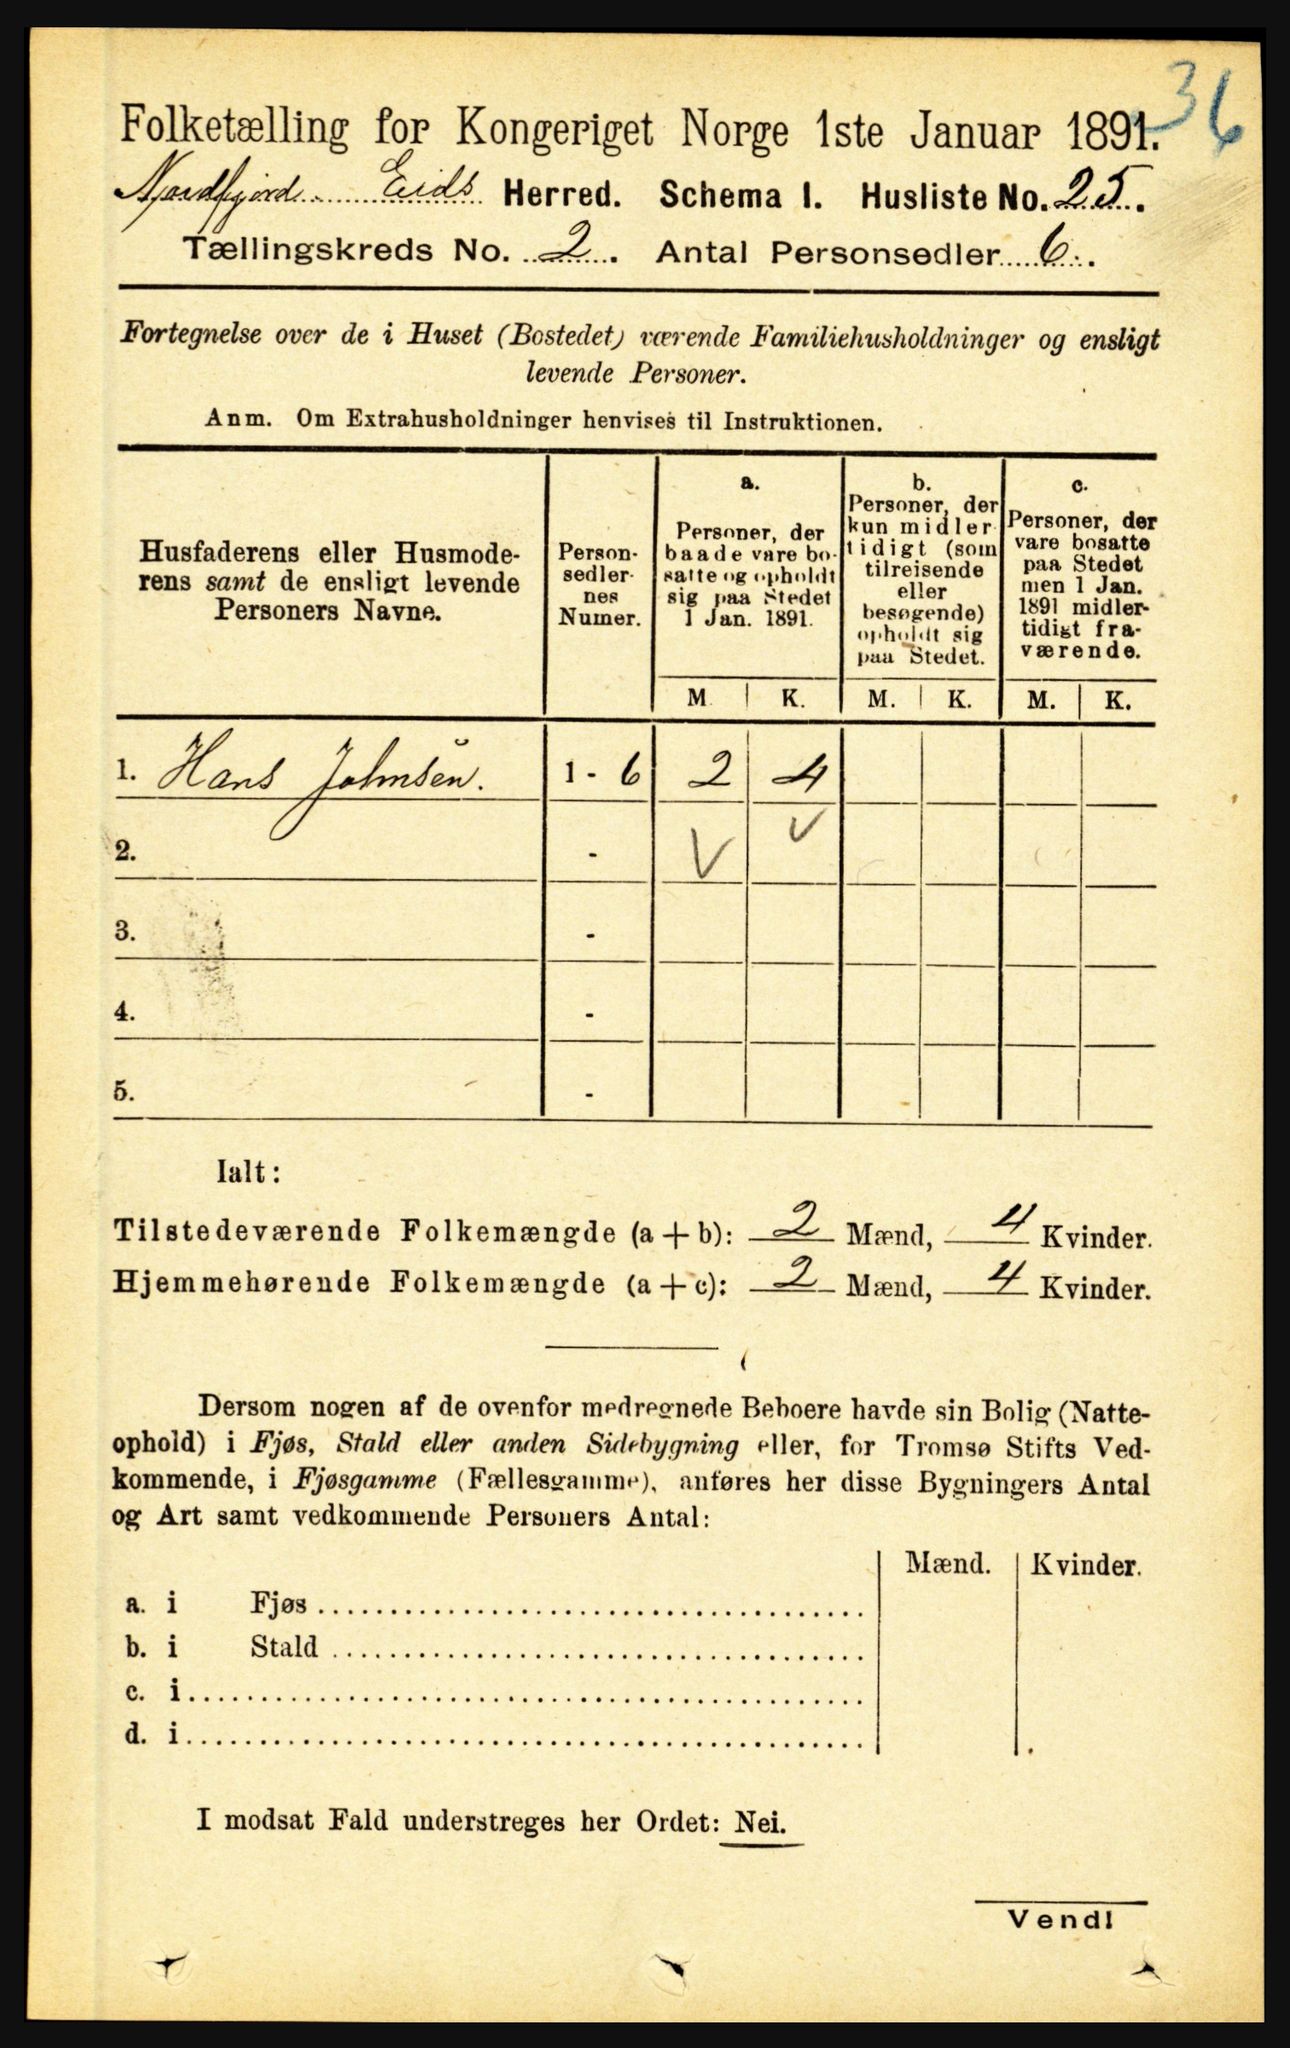 36
Folketælling for Kongeriget Norge 1ste Januar 1891.
Nordfjord Eids Herred. Schema 1. Husliste No. 25.
Tællingskreds No. 2. Antal Personsedler 6.
Fortegnelse over de i Huset (Bostedet) værende Familiehusholdninger og ensligt
levende Personer.
Anm. Om Extrahusholdninger henvises til Instruktionen.
Husfaderens eller Husmode-
rens samt de ensligt levende
Personers Navne.
Person-
sedler-
nes
Numer.
a.
Personer, der
baade vare bo-
satte og opholdt
sig paa Stedet
1 Jan. 1891.
b.
Personer, der
kun midler-
tidigt (som
tilreisende
eller
besøgende)
opholdt sig
paa Stedet.
c.
Personer, der
vare bosatte
paa Stedet
men 1 Jan.
1891 midler-
tidigt fra-
værende.
M. K. M. K. M. K.
1. Hans Johnsen. 1 - 6 2 4
2. - V V
3. -
4. -
5. -
Ialt:
Tilstedeværende Folkemængde (a + b): 2 Mænd, 4 Kvinder.
Hjemmehørende Folkemængde (a + c): 2 Mænd, 4 Kvinder.
Dersom nogen af de ovenfor medregnede Beboere havde sin Bolig (Natte-
ophold) i Fjøs, Stald eller anden Sidebygning eller, for Tromsø Stifts Ved-
kommende, i Fjøsgamme (Fællesgamme), anføres her disse Bygningers Antal
og Art samt vedkommende Personers Antal:
Mænd. Kvinder.
a. i Fjøs
b. i Stald
c. i
d. i
I modsat Fald understreges her Ordet: Nei.
Vend!